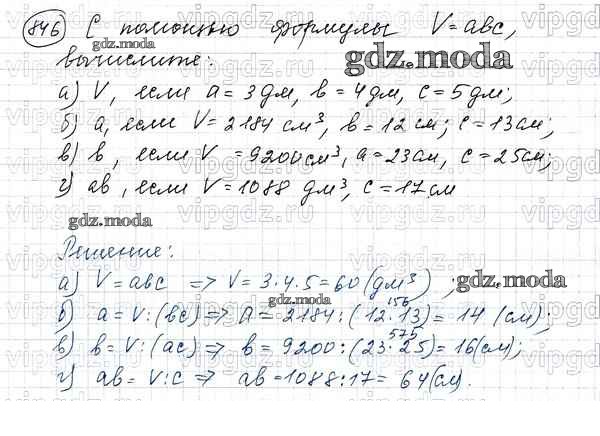 846 С помощью формулы V=abc,
вычислите:
а) V, если a=3дм, b=4дм, c=5дм;
б) a, если V=2184 см³, b=12см; c=13см;
в) b, если V=9200см³, a=23см, c=25см;
г) ab, если V=1088 дм³, c=17см
Решение:
а) V=abc => V=3·4·5=60(дм³);
б) a=V:(bc) => a=2184:(12·13)=14 (см);
156
в) b=V:(ac) => b=9200:(23·25)=16(см);
575
г) ab=V:c => ab=1088:17=64(см).
gdz.moda
gdz.moda
gdz.moda
gdz.moda
vipgdz.ru